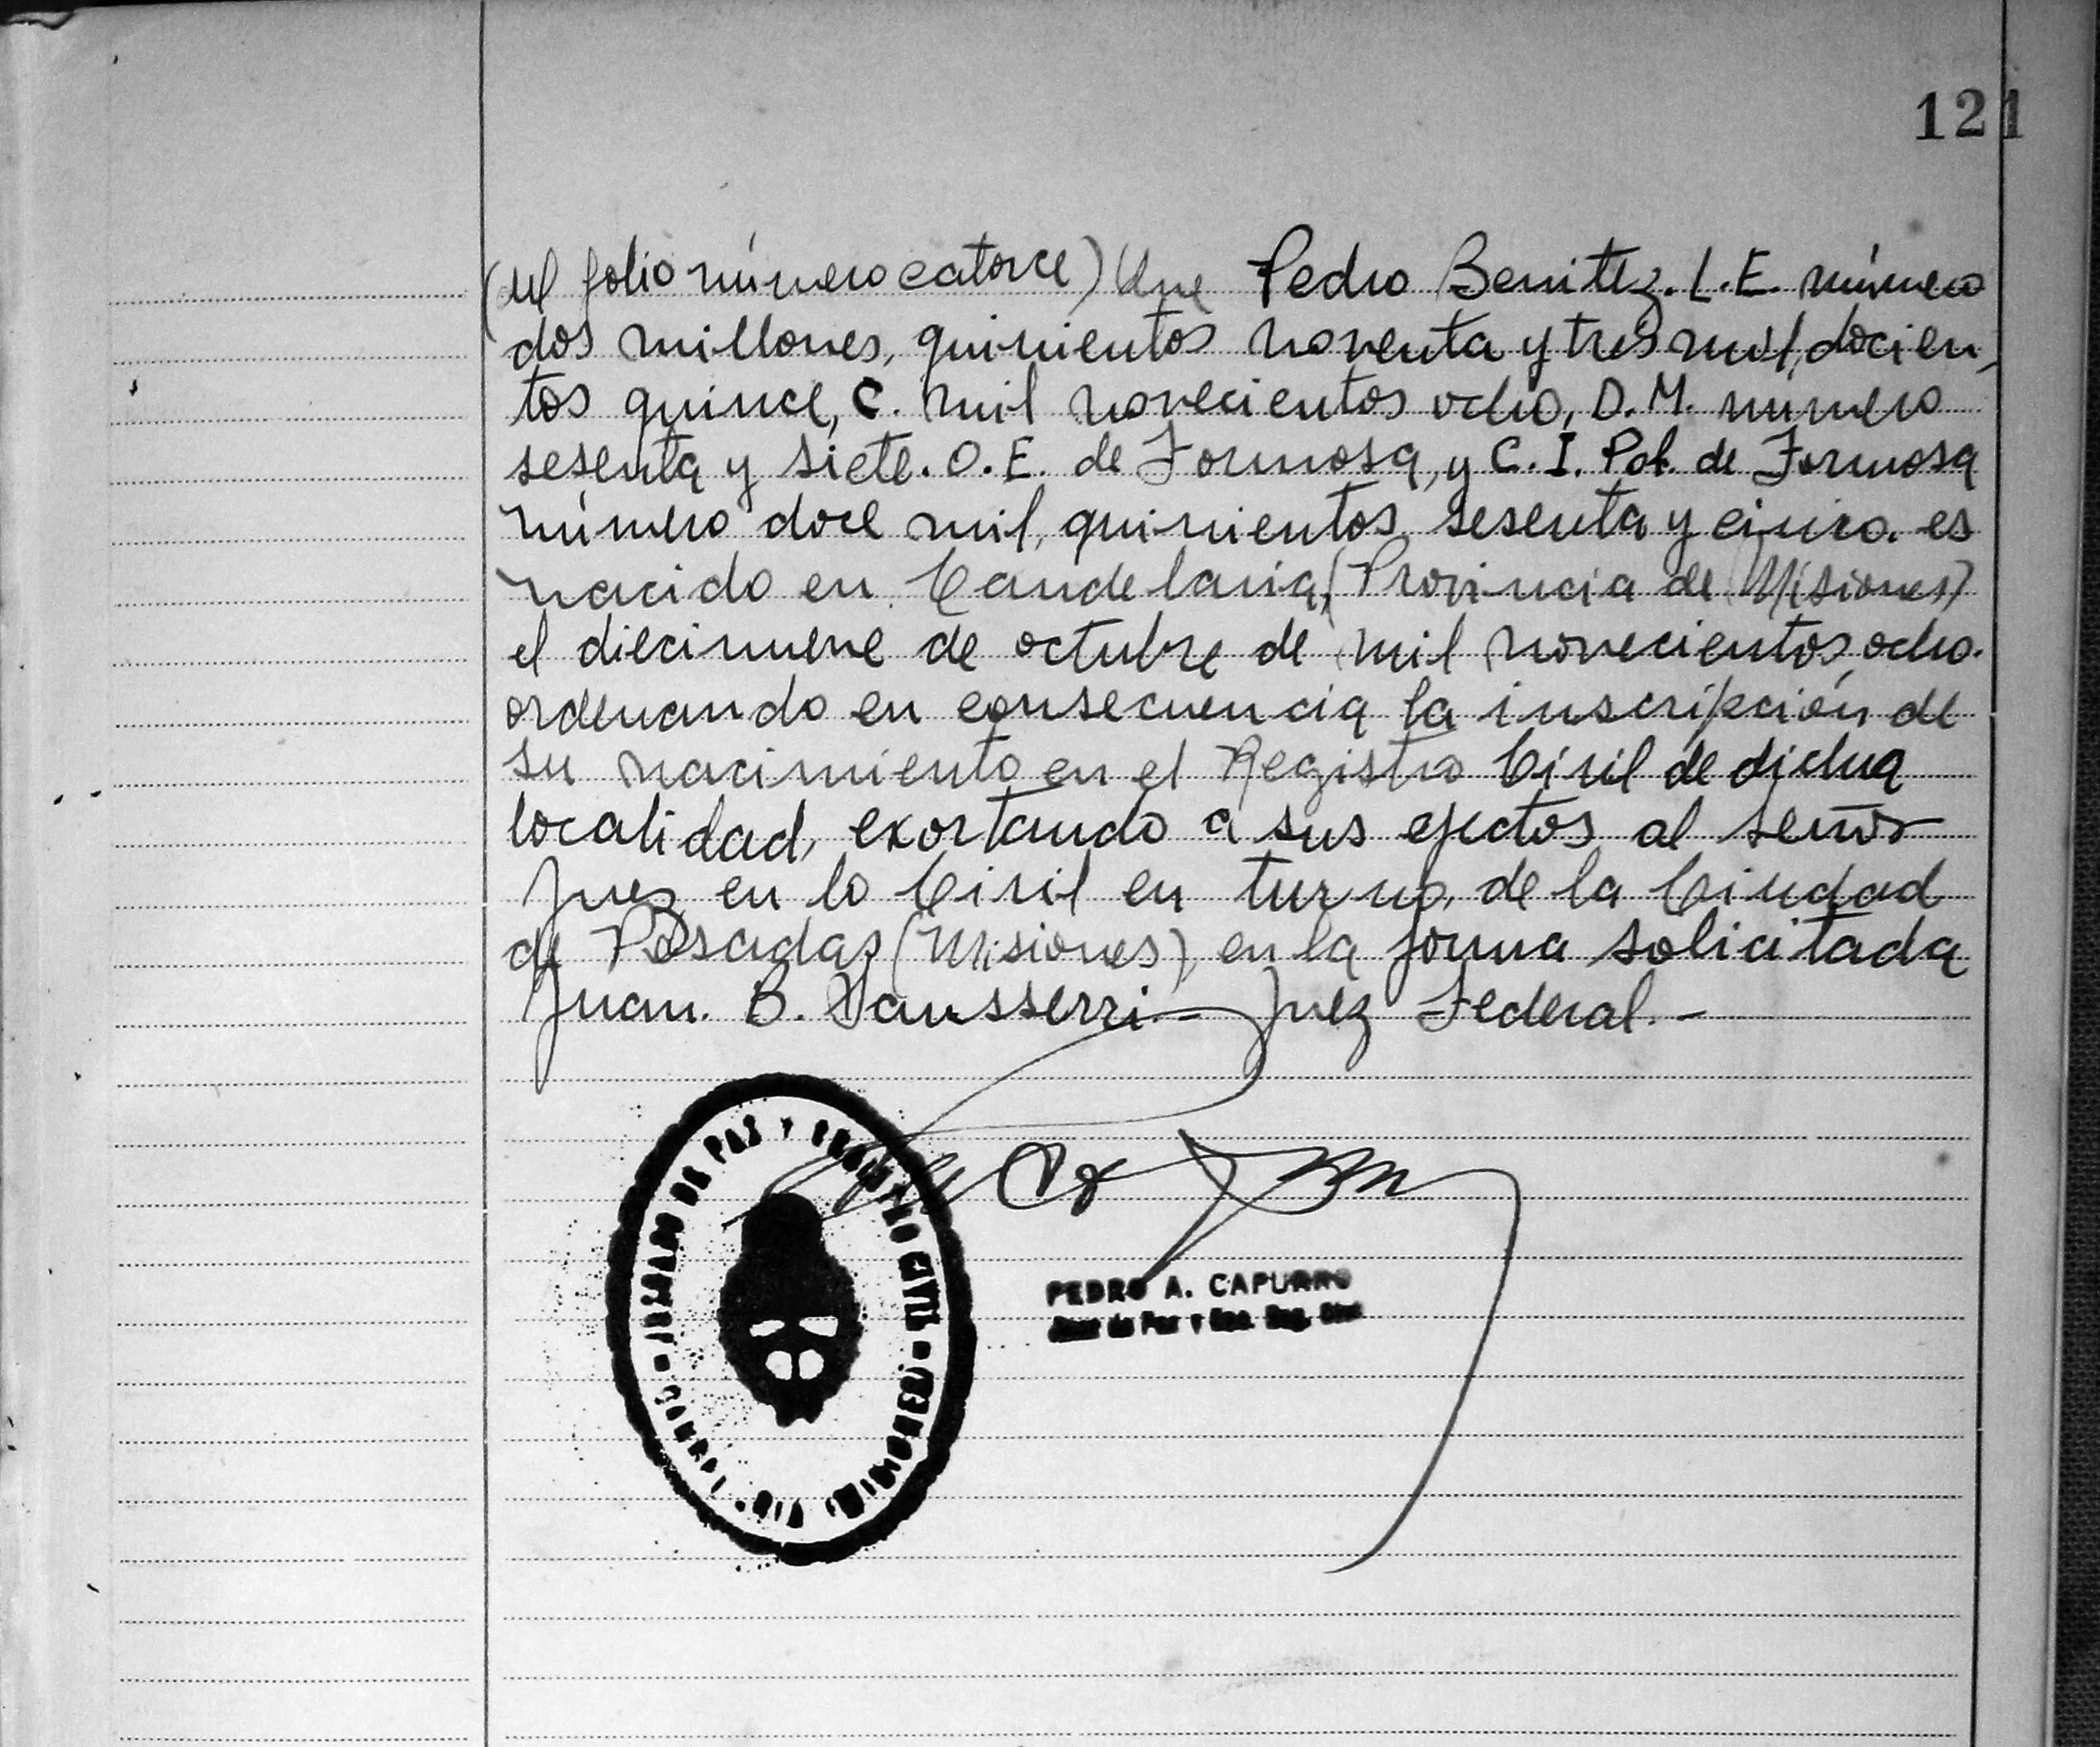 121
(del folio número catorce) Que Pedro Benitez. L.E. número
dos millones, quinientos noventa y tres mil, docien
tos quince, C. mil novecientos ocho, D.M. número
sesenta y siete. O.E. de Formosa, y C.I. Pol. de Formosa
número doce mil, quinientos sesenta y cinco. es
nacido en Candelaria, (Provincia de Misiones)
el diecinueve de octubre de mil novecientos ocho.
ordenando en consecuencia la inscripción de
su nacimiento en el Registro Civil de dicha
localidad, exortando a sus efectos al señor
Juez en lo Civil en turno, de la Ciudad
de Posadas (Misiones) en la forma solicitada
Juan. B. Juez Federal. -
JUZGADO DE PAZ Y REGISTRO CIVIL
PEDRO A. CAPURRO
Juez de Paz y Enc. Reg. Civil